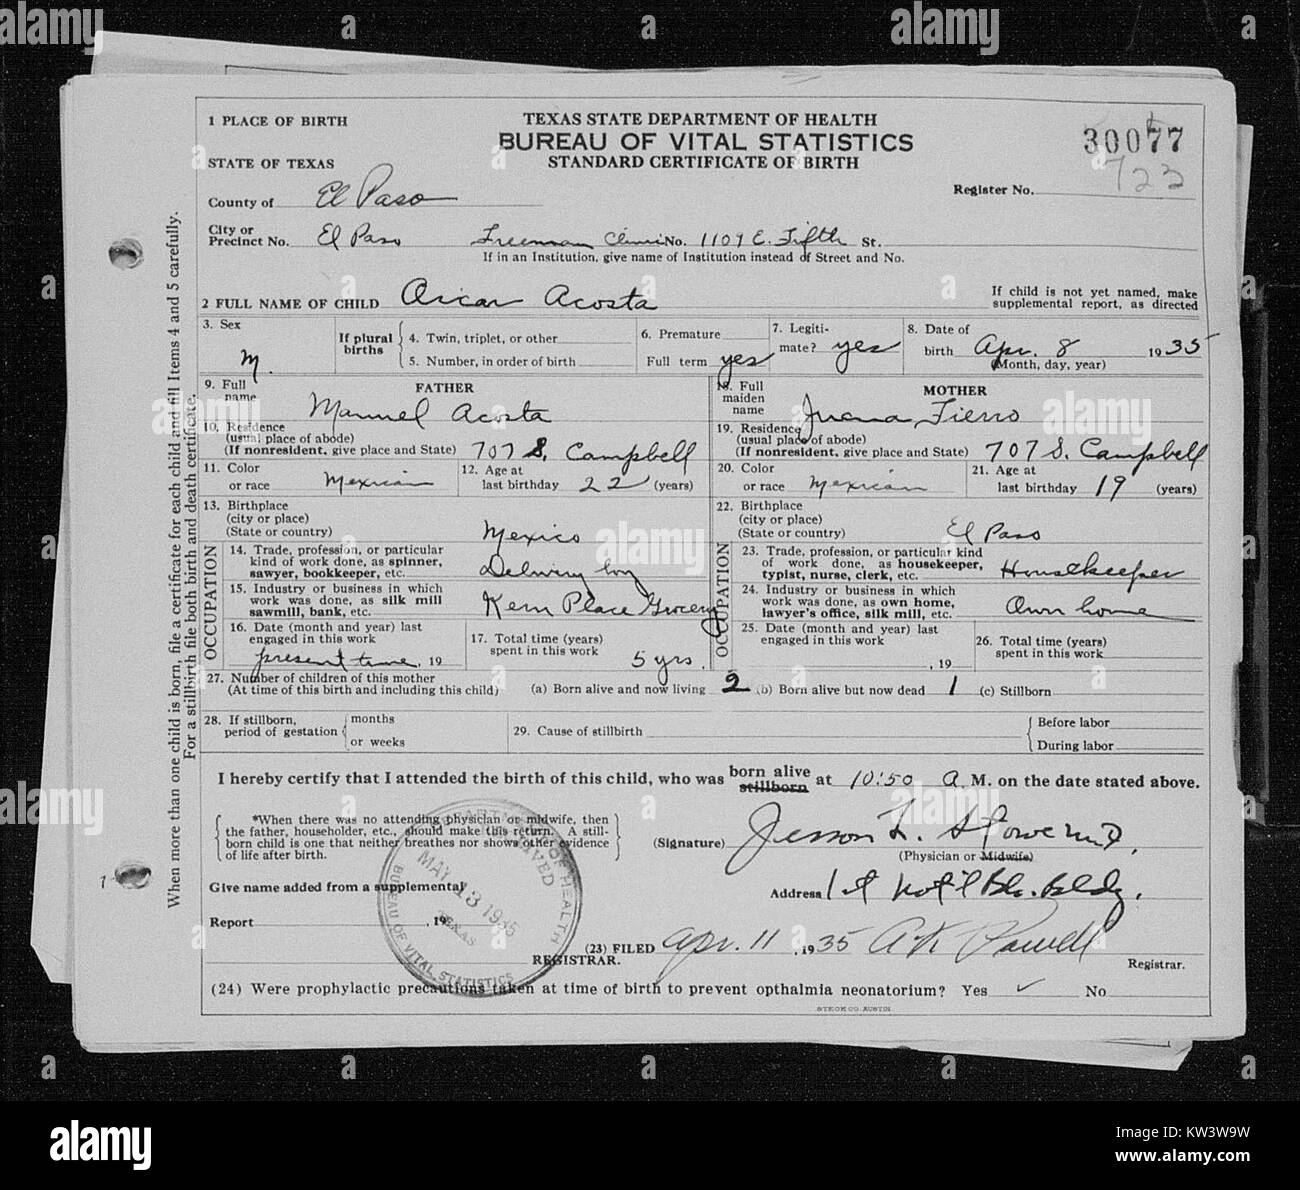 1 PLACE OF BIRTH
TEXAS STATE DEPARTMENT OF HEALTH
BUREAU OF VITAL STATISTICS
STANDARD CERTIFICATE OF BIRTH
30077
723
STATE OF TEXAS
Register No.
County of El Paso
City or
Precinct No. El Paso Freeman Clinic No. 1109 E. Fifth St.
If in an Institution, give name of Institution instead of Street and No.
2 FULL NAME OF CHILD Oscar Acosta
If child is not yet named, make
supplemental report, as directed
3. Sex
M.
If plural
births
4. Twin, triplet, or other
5. Number, in order of birth
6. Premature
Full term yes
7. Legiti-
mate? yes
8. Date of
birth Apr. 8 1935
(Month, day, year)
FATHER
9. Full
name Manuel Acosta
10. Residence
(usual place of abode)
(If nonresident, give place and State) 707 S. Campbell
11. Color
or race Mexican
12. Age at
last birthday 22 (years)
13. Birthplace
(city or place)
(State or country) Mexico
OCCUPATION
14. Trade, profession, or particular
kind of work done, as spinner,
sawyer, bookkeeper, etc. Delivery boy
15. Industry or business in which
work was done, as silk mill
sawmill, bank, etc. Kern Place Grocery
16. Date (month and year) last
engaged in this work
present time, 19
17. Total time (years)
spent in this work 5 yrs.
MOTHER
18. Full
maiden
name Juana Fierro
19. Residence
(usual place of abode)
(If nonresident, give place and State) 707 S. Campbell
20. Color
or race Mexican
21. Age at
last birthday 19 (years)
22. Birthplace
(city or place)
(State or country) El Paso
OCCUPATION
23. Trade, profession, or particular kind
of work done, as housekeeper,
typist, nurse, clerk, etc. Housekeeper
24. Industry or business in which
work was done, as own home,
lawyer's office, silk mill, etc. Own home
25. Date (month and year) last
engaged in this work
, 19
26. Total time (years)
spent in this work
27. Number of children of this mother
(At time of this birth and including this child) (a) Born alive and now living 2 (b) Born alive but now dead 1 (c) Stillborn
28. If stillborn,
period of gestation
months
or weeks
29. Cause of stillbirth
Before labor
During labor
I hereby certify that I attended the birth of this child, who was born alive stillborn at 10:50 A. M. on the date stated above.
*When there was no attending physician or midwife, then
the father, householder, etc., should make this return. A still-
born child is one that neither breathes nor shows other evidence
of life after birth.
(Signature)
(Physician or Midwife)
Give name added from a supplemental
Address 1st Nat'l Bk. Bldg.
Report , 19
REGISTRAR.
(23) FILED Apr. 11, 1935 Powell
Registrar.
(24) Were prophylactic precautions taken at time of birth to prevent opthalmia neonatorium? Yes ✓ No
RECEIVED
MAY 13 1935
TEXAS
BUREAU OF VITAL STATISTICS
When more than one child is born, file a certificate for each child and fill Items 4 and 5 carefully.
For a stillbirth file both birth and death certificate.
a alamy stock photo
alamy
Image ID: KW3W9W
www.alamy.com